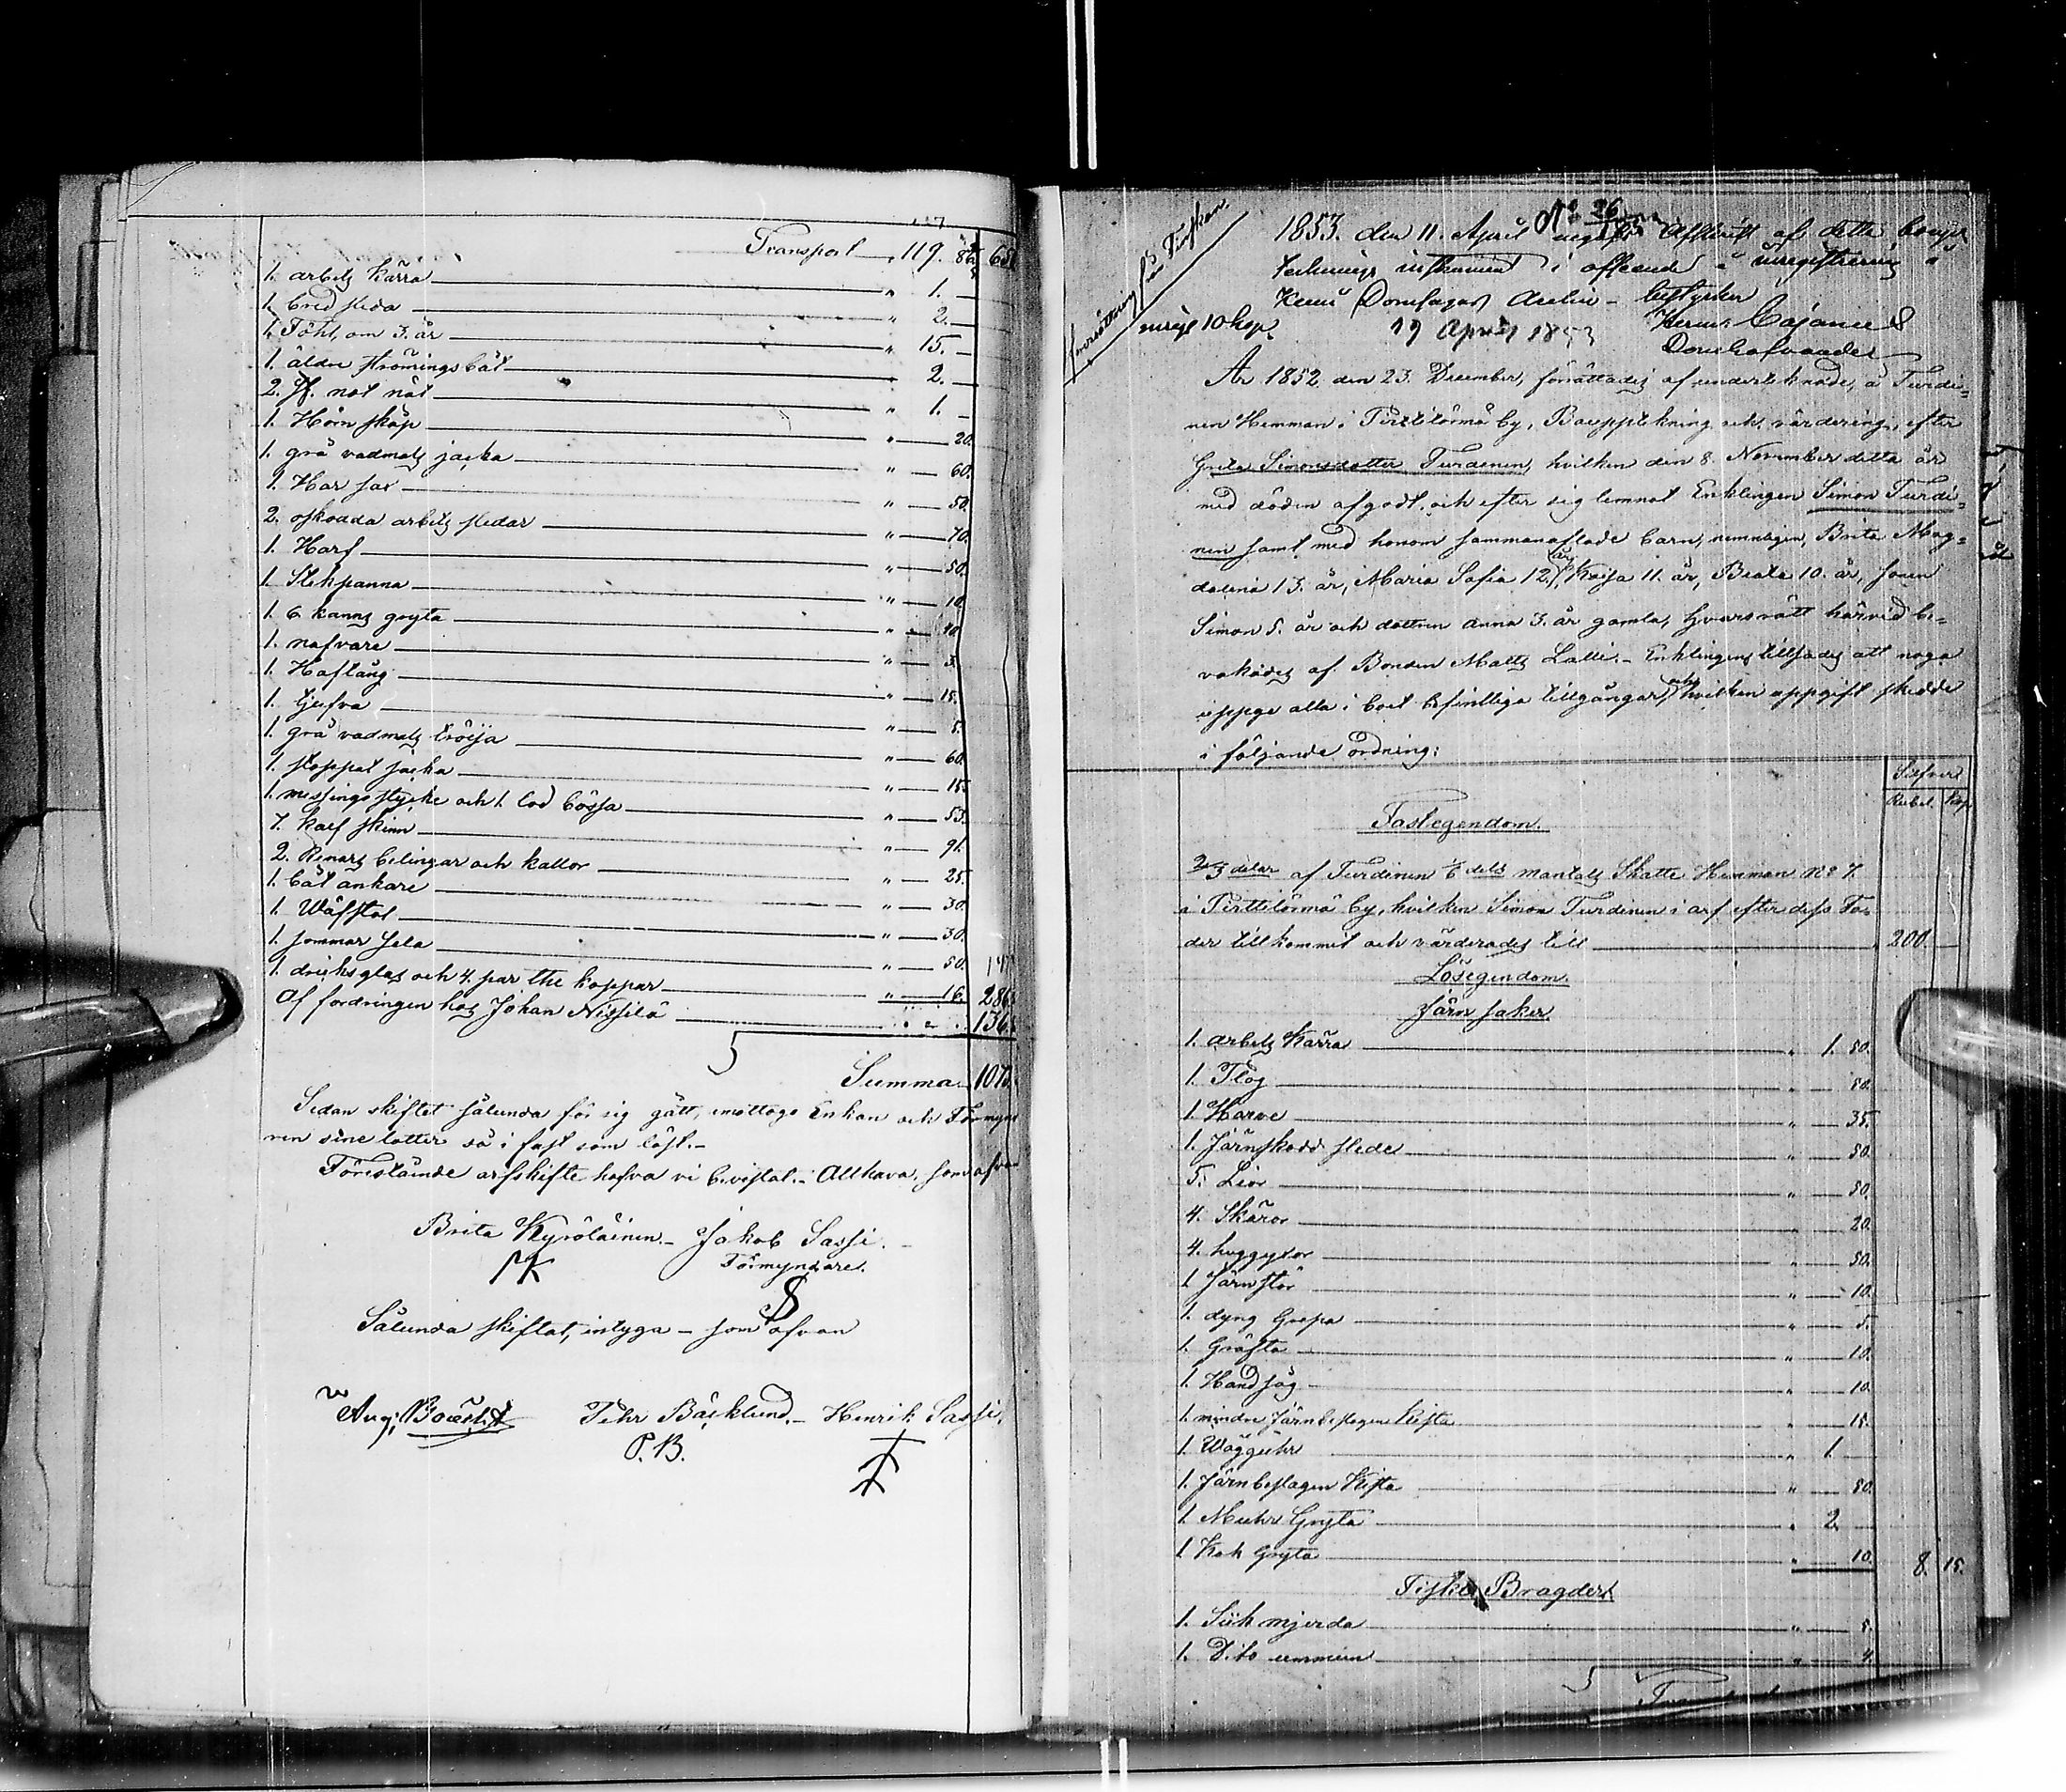 Transport 119.
1. arbets kärra " 1. —
1. bred släda " 2. —
1. Föhl, om 3. år " 15. —
1. äldre strömings båt 2. —
2. St. not nät " 1. —
1. Hörn skåp " 20.
1. grå vadmals jacka " 60.
1. Har sax " 50.
2. oskodda arbets slädar " 70.
1. Harf " 50.
1. Stekpanna " 10.
1. 6 kanns gryta " 40
1. nafvare " 3.
1. Haftång " 15.
1. tjufva " 5.
1. grå vadmals tröija " 60.
1. stoppat jacka " 15.
1. messings stycke och 1. lod bössa " 53.
7. kalf skinn " 91.
2. Renars belingar och kallor " 25.
1. båt ankare " 30.
1. Wäfstol " 30.
1. sommar sela " 50.
1. dricksglas och 4. par the koppar " 16. 286
Af fordringen hos Johan Nissilä " " 136
Summa 107
Sedan skiftet sålunda för sig gått, emottogo Enkan och Förmyn
ren sine lotter så i fast som löst.–
Förestående arfskifte hafva vi bevistat. Allkava, som ofvan
Brita Kyröläinen.– Jakob Sassi.–
Förmyndare.
Sålunda skiftat, intyga – som ofvan
Aug. Pehr Bäcklund.– Henrik Sassi.
P. B.
No 26
1853. den 11. April afskrift af detta boupp
tecknings instrument i afseende å inregistrering
Kemi Domsagas Archiv – bestyrker
10 kop. 19 April 1853 Cajanus
Domhafvande
År 1852 den 23. December, förrättades af undertecknade, å Turdi=
nen Hemman i Pirttilörmä by, Boupptekning och värdering, efter
Greta Simonsdotter Turdinen, hvilken den 8. November detta år
med döden afgått, och efter sig lemnat Enklingen Simon Turdi=
nen samt med honom sammanaflade barn, nemnligen, Brita Mag=
dalena 13. år, Maria Sofia 12. år, Kaisa 11. år, Beata 10. år, sonen
Simon 5. år och dottren Anna 3. år gamla, hvars rätt härvid be=
vakades af Bonden Matts Lalli.– Enklingen tillsades att noga
uppge alla i boet befintliga tillgångar, och hvilken uppgift skedde
i följande ordning:
Silfver
Rubel Kop.
Fastegendom.
2/3 delar af Turdinen 1/6 dels mantals Skatte Hemman No 7.
i Pirttilörmä by, hvilken Simon Turdinen i arf efter dess Fa=
der tillkommit och värderades till 200. —
Lösegendom.
Järn saker.
1. arbets Kärra " 1. 50.
1. Plog " 50.
1. Harve " 35.
1. Järnskodd släde " 50.
5. Lior " 50.
4. Skäror " 20.
4. huggyxor " 50.
1. Järnstör " 10.
1. dyng Grepa " 5.
1. Gräfta " 10.
1. Handsåg " 10.
1. mindre Järnbeslagen Kista " 15.
1. Wägguhr " 1. —
1. Järnbeslagen Kista " 50.
1. Muhr Gryta " 2. —
1. Kok Gryta " 10. 8. 15.
Fiske Bragder
1. Siik mjerda " 5.
1. Dito " 4.